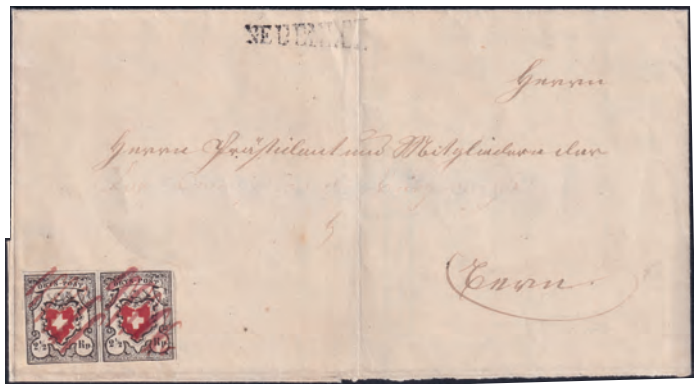 Herrn
Herrn Präsident und Mitgliedern der
Bern
ORTS-POST ORTS-POST
2½ Rp 2½ Rp